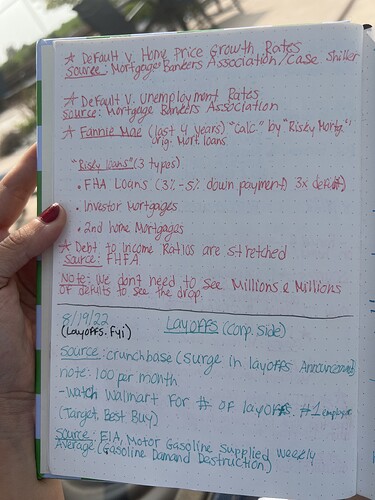 ☆ Default v. Home Price Growth Rates
Source: Mortgage Bankers Association/Case Shiller
☆ Default v. Unemployment Rates
Source: Mortgage Bankers Association
☆ Fannie Mae (last 4 years) "calc." by "Risky Mortg."/
orig. Mort. loans
"Risky loans" (3 types)
• FHA Loans (3%-5% down payment) 3x
• Investor Mortgages
• 2nd home Mortgages
☆ Debt to Income Ratios are stretched
Source: FHFA
Note: We don't need to see Millions & Millions
of defults to see the drop.
8/19/22 Layoffs (corp. side)
(Layoffs.fyi)
Source: crunchbase (surge in layoffs Announced)
note: 100 per month
- watch Walmart for # of layoffs. #1 employer
(Target, Best Buy)
Source: EIA, Motor Gasoline Supplied Weekly
Average (Gasoline Demand Destruction)